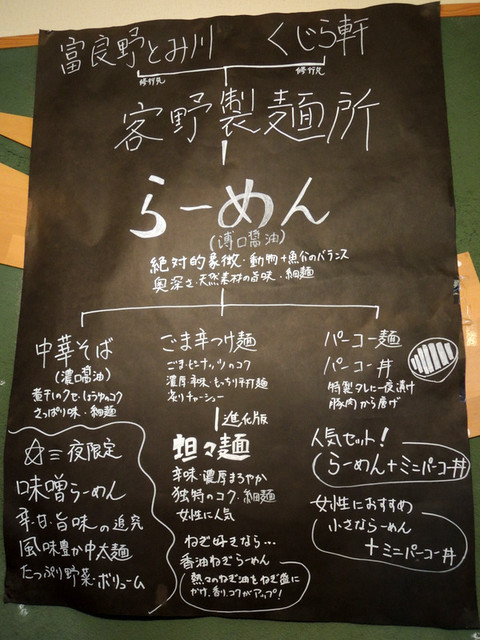 富良野とみ川　くじら軒
修行先　修行先
客野製麺所
らーめん
(薄口醤油)
絶対的象徴・動物+魚介のバランス
奥深さ・天然素材の旨味・細麺
中華そば
(濃口醤油)
煮干しのクセ・しょうゆのコク
さっぱり味・細麺
☆=夜限定
味噌らーめん
辛・甘・旨味の追究
風味豊か中太麺
たっぷり野菜・ボリューム
ごま辛つけ麺
ごま・ピーナッツのコク
濃厚辛味・もっちり平打麺
炙りチャーシュー
進化版
坦々麺
辛味・濃厚まろやか
独特のコク・細麺
女性に人気
ねぎ好きなら…
香油ねぎらーめん
熱々のねぎ油をねぎ盛に
かけ、香り、コクがアップ!
パーコー麺
パーコー丼
特製タレに一夜漬け
豚肉から揚げ
人気セット!
らーめん+ミニパーコー丼
女性におすすめ
小さならーめん
+ミニパーコー丼